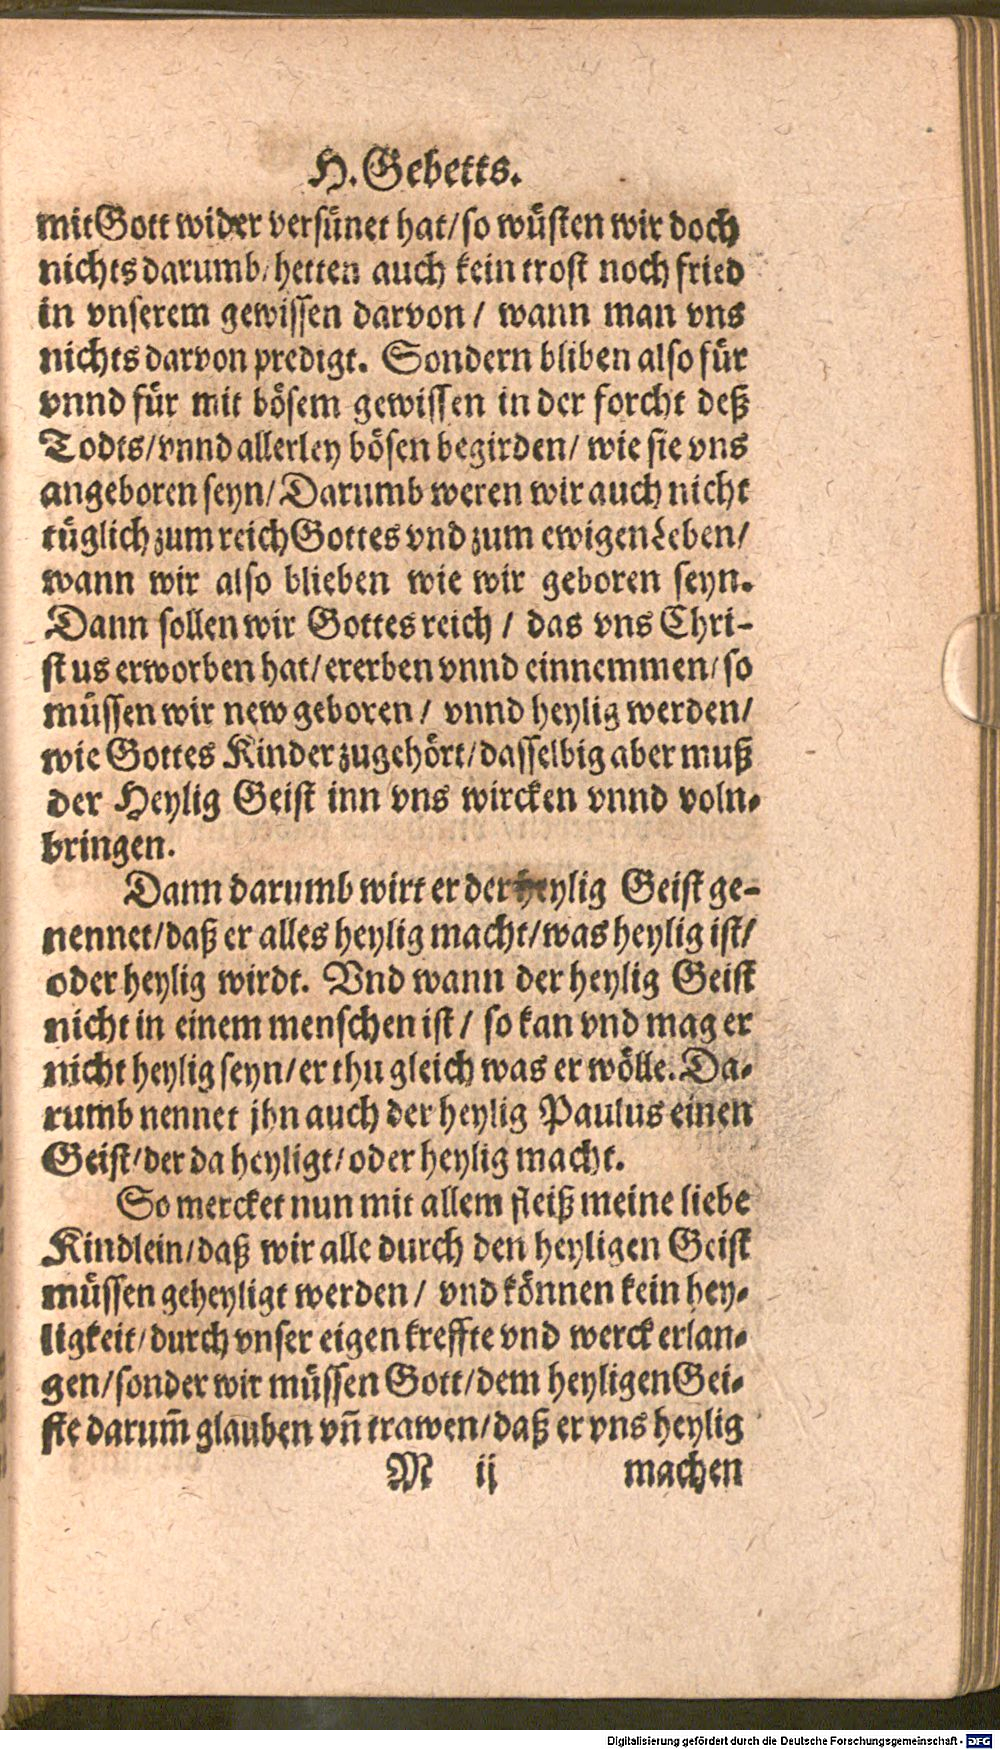 H. Gebetts.
mit Gott wider versünet hat/ so wüsten wir doch
nichts darumb/ hetten auch kein trost noch fried
in vnserem gewissen darvon/ wann man vns
nichts darvon predigt. Sondern bliben also für
vnnd für mit bösem gewissen in der forcht deß
Todts/ vnnd allerley bösen begirden/ wie sie vns
angeboren seyn/ Darumb weren wir auch nicht
tüglich zum reich Gottes vnd zum ewigen Leben/
wann wir also blieben wie wir geboren seyn.
Dann sollen wir Gottes reich/ das vns Chri-
stus erworben hat/ ererben vnnd einnemmen/ so
müssen wir new geboren/ vnnd heylig werden/
wie Gottes Kinder zugehört/ dasselbig aber muß
der Heylig Geist inn vns wircken vnnd voln-
bringen.
Dann darumb wirt er der heylig Geist ge-
nennet/ daß er alles heylig macht/ was heylig ist/
oder heylig wirdt. Vnd wann der heylig Geist
nicht in einem menschen ist/ so kan vnd mag er
nicht heylig seyn/ er thu gleich was er wölle. Da-
rumb nennet jhn auch der heylig Paulus einen
Geist/ der da heyligt/ oder heylig macht.
So mercket nun mit allem fleiß meine liebe
Kindlein/ daß wir alle durch den heyligen Geist
müssen geheyligt werden/ vnd können kein hey-
ligkeit/ durch vnser eigen kreffte vnd werck erlan-
gen/ sonder wir müssen Gott/ dem heyligen Gei-
ste darum̄ glauben vn̄ trawen/ daß er vns heylig
M ij machen
Digitalisierung gefördert durch die Deutsche Forschungsgemeinschaft - DFG